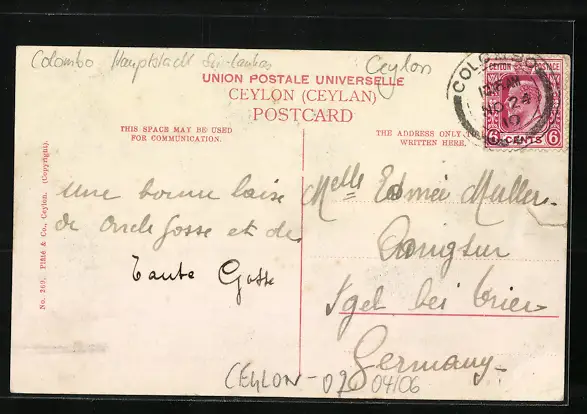 Colombo Hauptstadt Sri-Lankas
Ceylon
UNION POSTALE UNIVERSELLE
CEYLON (CEYLAN)
POSTCARD
THIS SPACE MAY BE USED
FOR COMMUNICATION.
THE ADDRESS ONLY
WRITTEN HERE.
COLOMBO
NO 24
CEYLON POSTAGE
6 CENTS 6
No. 369. Plâté & Co., Ceylon. (Copyright).
Une bonne baise
de Oncle Gosse et de
Tante Gosse
Melle Edmée Muller
Igel bei Trier
Germany
CEYLON-02 04/06